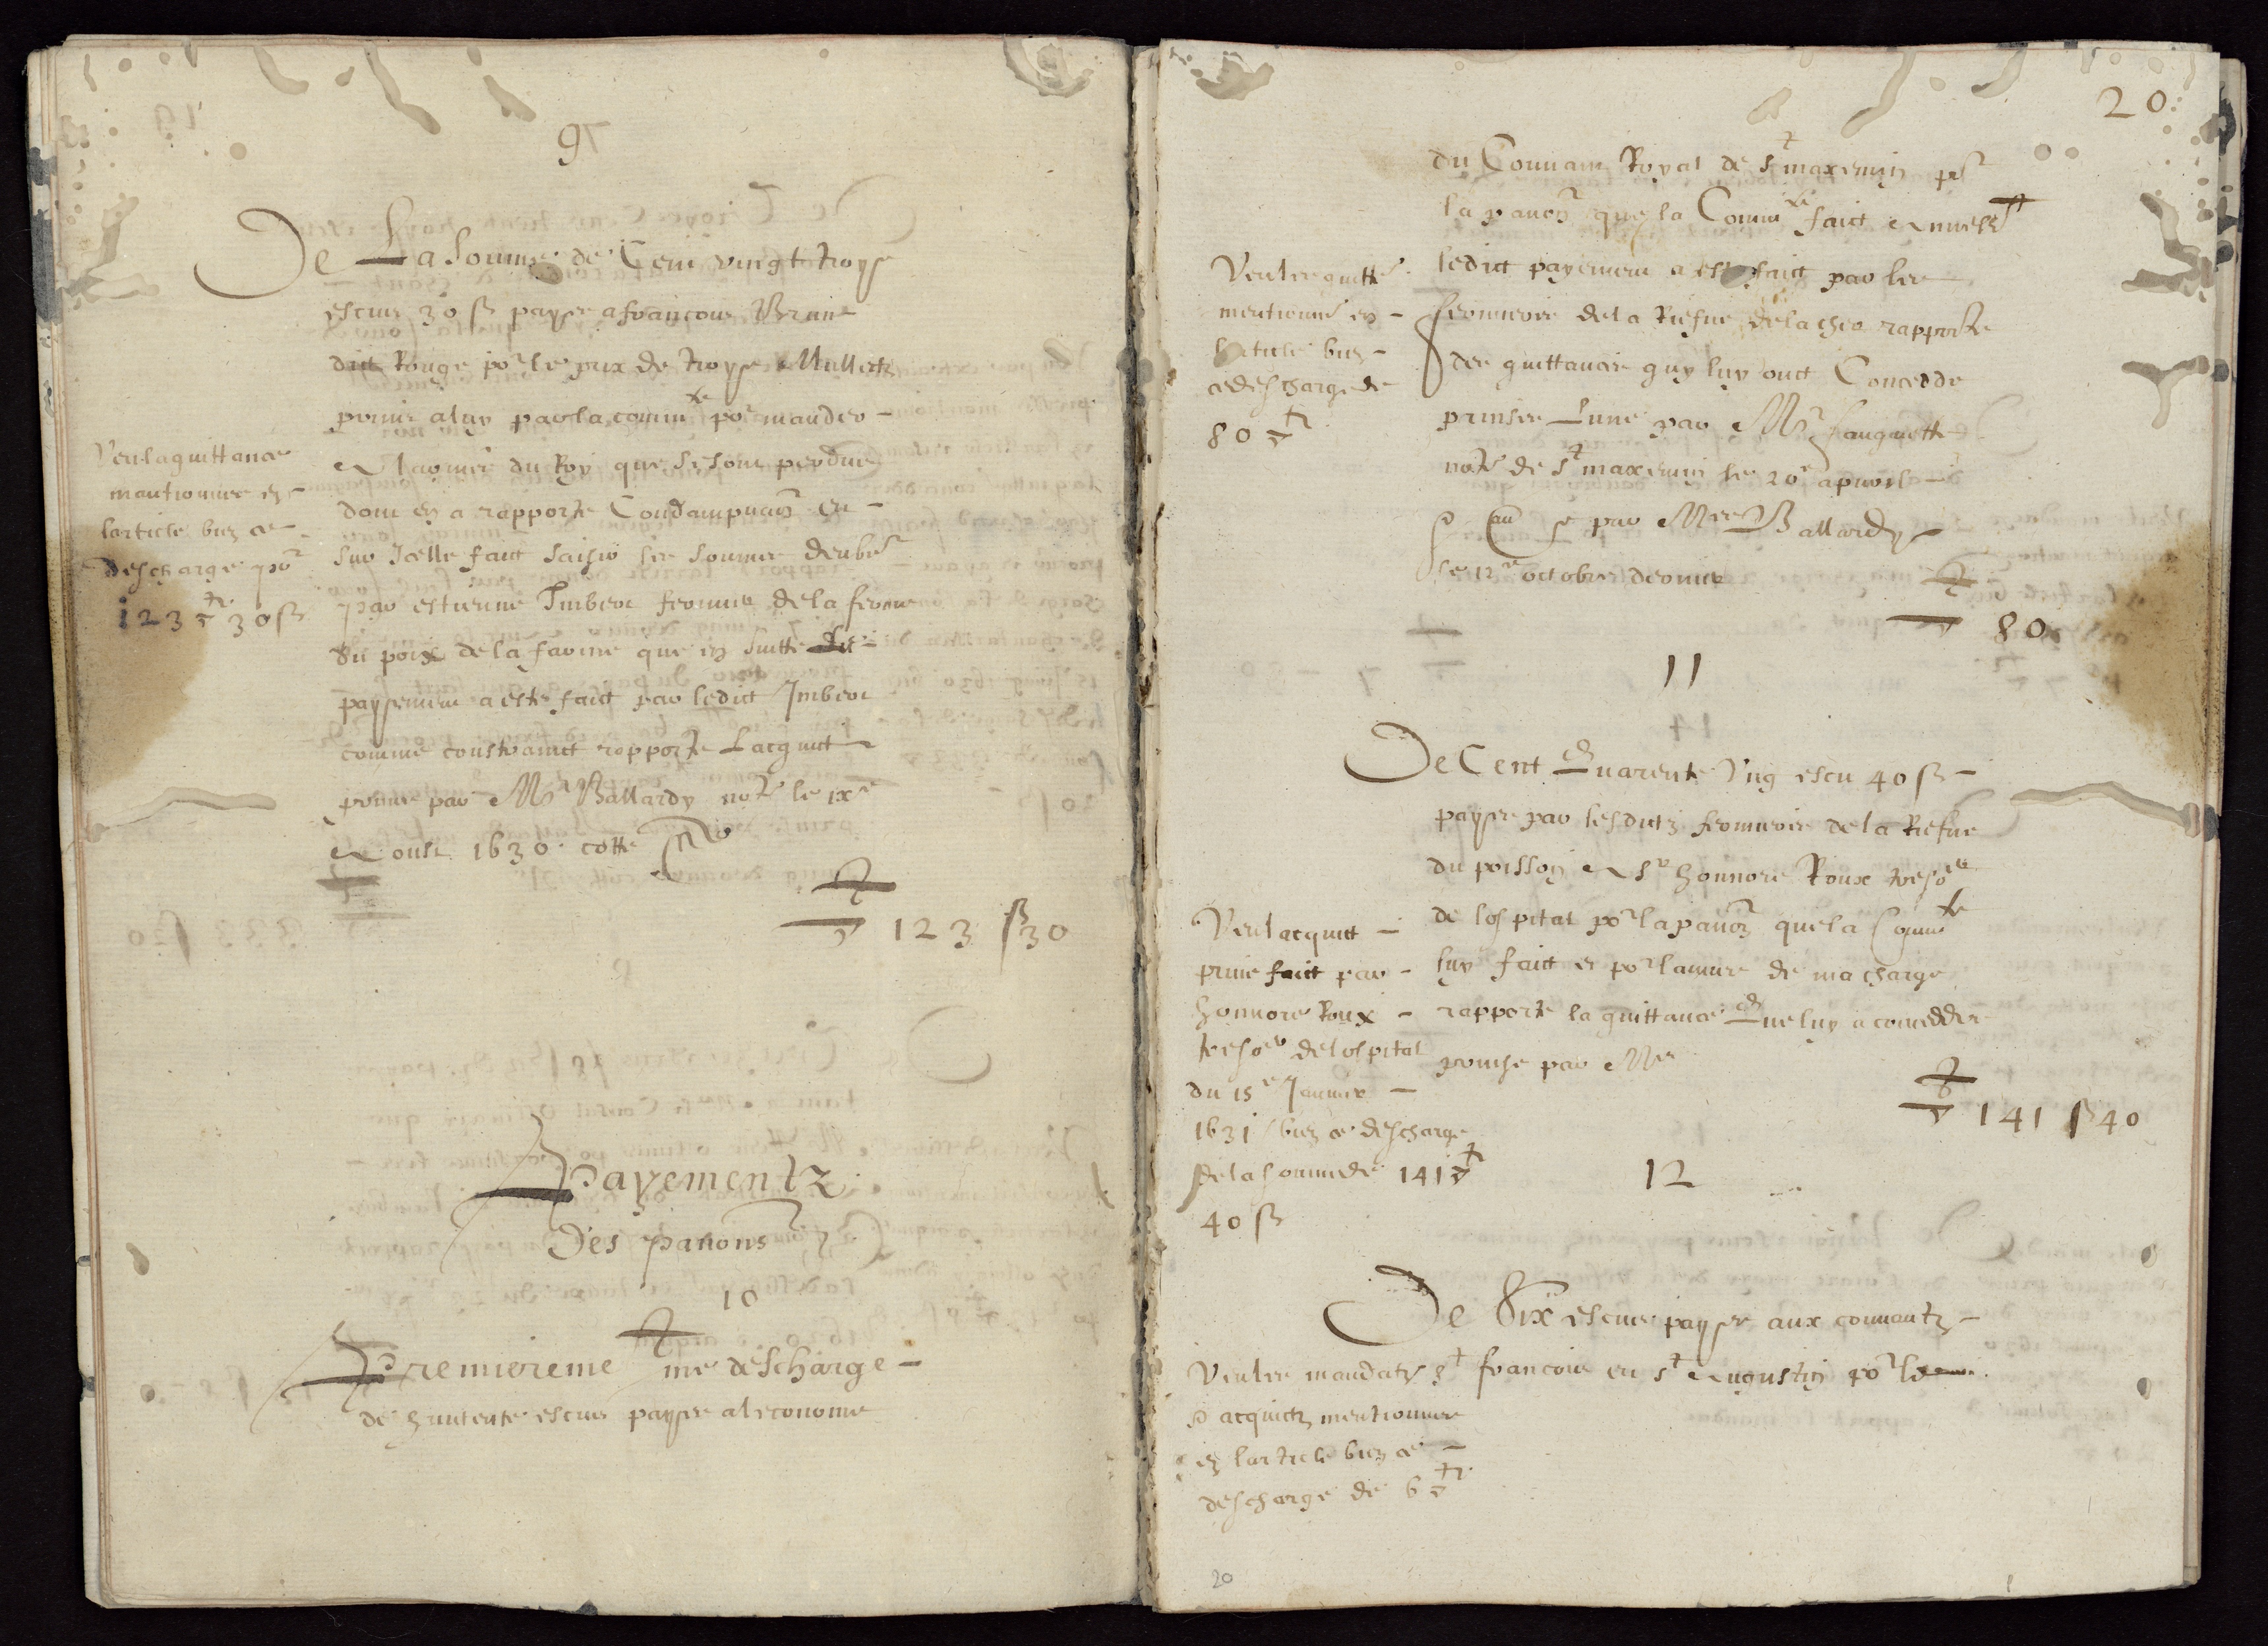 9
De La somme de Cent vingt troys
escus 30 ß payes a francois Brun
dict Rouge por le prix de troys Mulletz
prins a luy par la commte por mander
A larmee du Roy que se sont perdues
dont en a rapporte Condampnaon et
sur Icelle faict saisir les sommes deubes
par estienne Imbert fermier de la ferme
du poix de la farine que en suitte
payement a este faict par ledict Imbert
comme constrainct rapporte Lacquit
prinse par Mr Ballardy notre le ixe
Aoust 1630 cotte
Veu la quittance
mentionnee en
larticle bien ce
descharge por
123 30 ß
123 ß 30
Payementz
Des panons
10
Premierement me descharge
de huictante escus payes a leconome
20
du Couvant Royal de st maxemin por
la panon que la Commte faict Annuellt
ledict payement a este faict par les
fermiers de la Riefve de la cher rapporte
des quittances quy luy ont Concedde
prinses Lune par Mr fauquette
notre de st maxemin le 20e apvril
par Mre Ballardy
le 12e octobre dernier
Veu les quittes
mentionnes en
larticle bien
ce descharge de
80
80
11
De Cent Quarente Ung escu 40 ß
payes par lesdictz fermiers de la Riefve
du poisson A sr honnore Roux tresor
de lospital por la panon que la Commte
luy faict et por lannee de ma charge
rapporte la quittance Que luy a conceddee
prinse par Me
Veu lacquit
prive faict par
honnore Roux
tresor de lospital
du 15e Janvier
1631 bien ce descharge
de la somme de 141
40 ß
141 ß 40
12
De Six escus payes aux couvantz
st francois et st Augustin por
Veu les mandatz
acquictz mentionnes
en larticle bien ce
descharge de 6
20